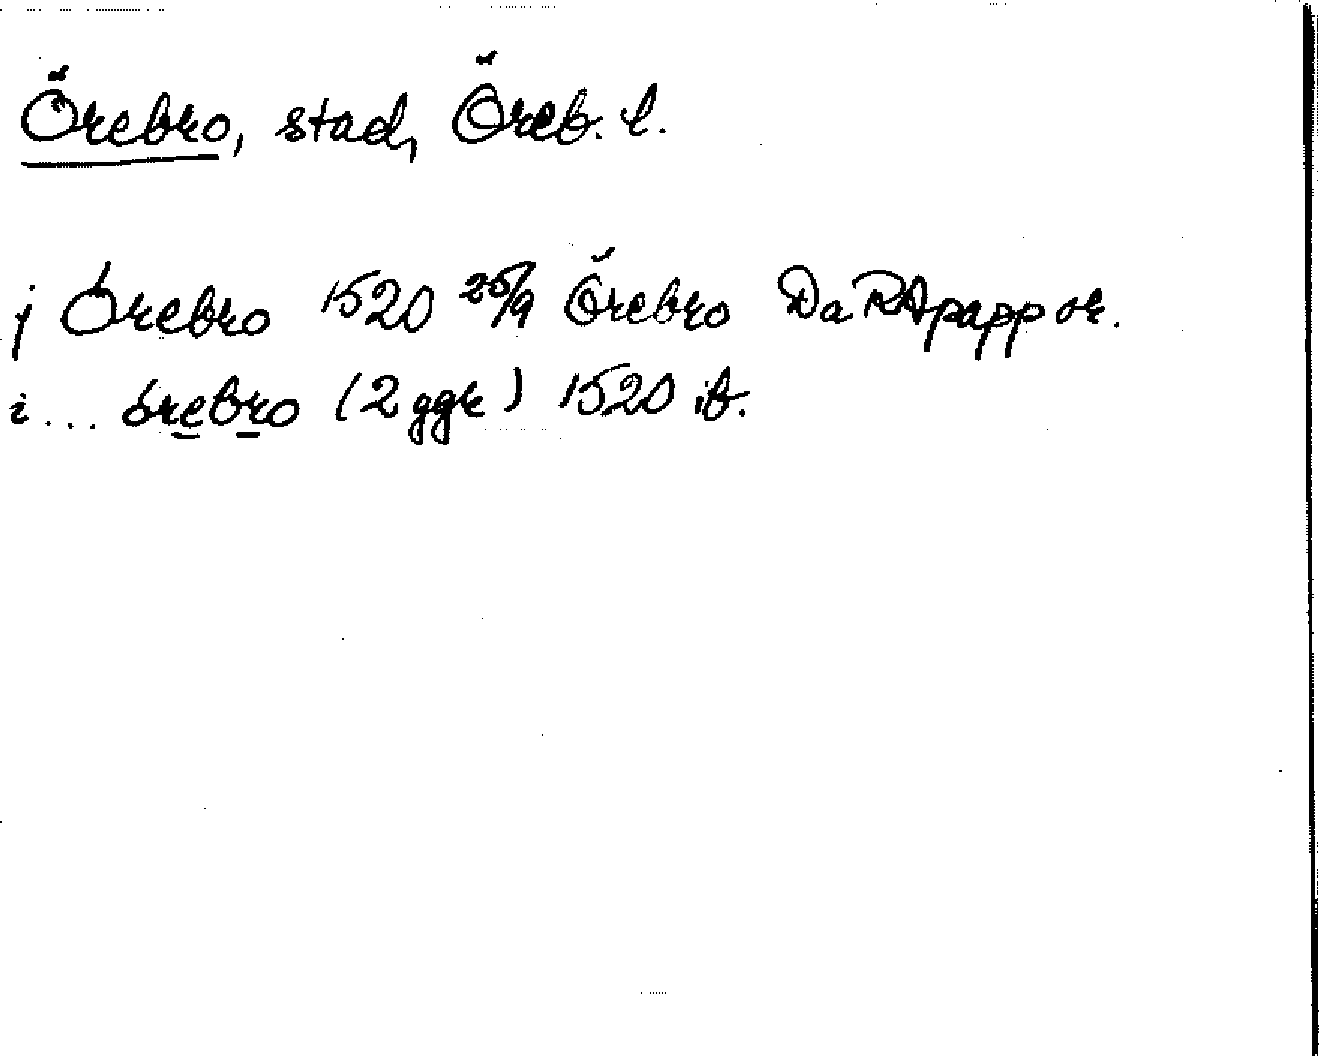 Örebro, stad, Öreb. l.
j Órebro 1520 25/9 Örebro Da RA papp or.
i... órebro (2 ggr) 1520 ib.